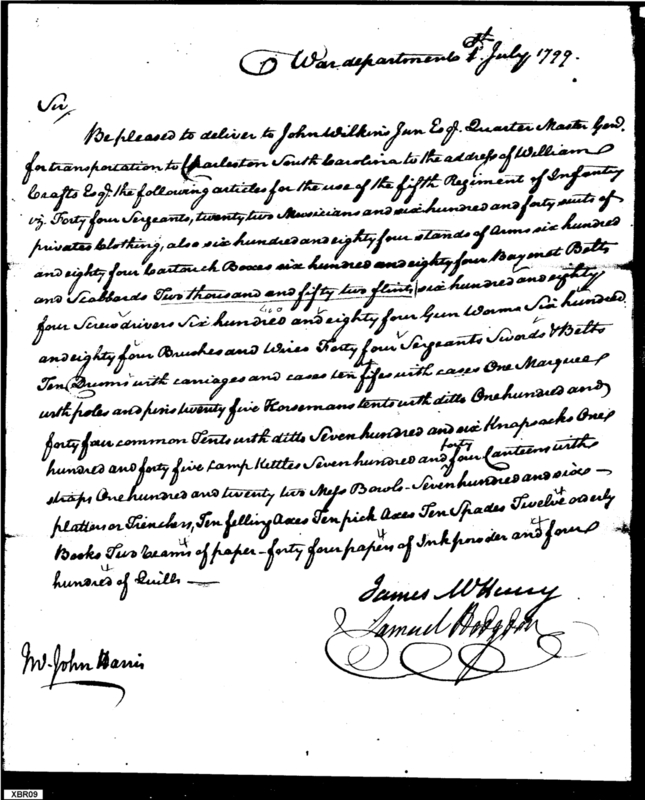 War department 1st July 1799.
Sir,
Be pleased to deliver to John Wilkins Jun Esqr. Quarter Master Genl.
for transportation to Charleston South Carolina to the address of William
Crafts Esqr. the following articles for the use of the fifth Regiment of Infantry
vz. Forty four Sergeants, twenty two Musicians and six hundred and forty suits of
privates Clothing, also six hundred and eighty four stands of Arms six hundred
and eighty four Cartouch Boxes six hundred and eighty four Bayonet Belts
and Scabbards Two thousand and fifty two flints six hundred and eighty
four Screw drivers Six hundred and eighty four Gun Worms Six hundred
and eighty four Brushes and Wires Forty four Sergeants Swords & Belts
Ten Drums with carriages and cases ten fifes with cases One Marquee
with poles and pins twenty five Horsemans tents with ditto One hundred and
forty four common Tents with ditto Seven hundred and six Knapsacks One
hundred and forty five Camp Kettles Seven hundred and forty four Canteens with
straps One hundred and twenty two Mess Bowls - Seven hundred and six
platters or Trenchers, Ten felling Axes Ten pick Axes Ten Spades Twelve orderly
Books Two reams of paper - forty four papers of Ink powder and four
hundred of Quills —
James McHenry
Samuel Hodgdon
Mr. John Harris
XBR09